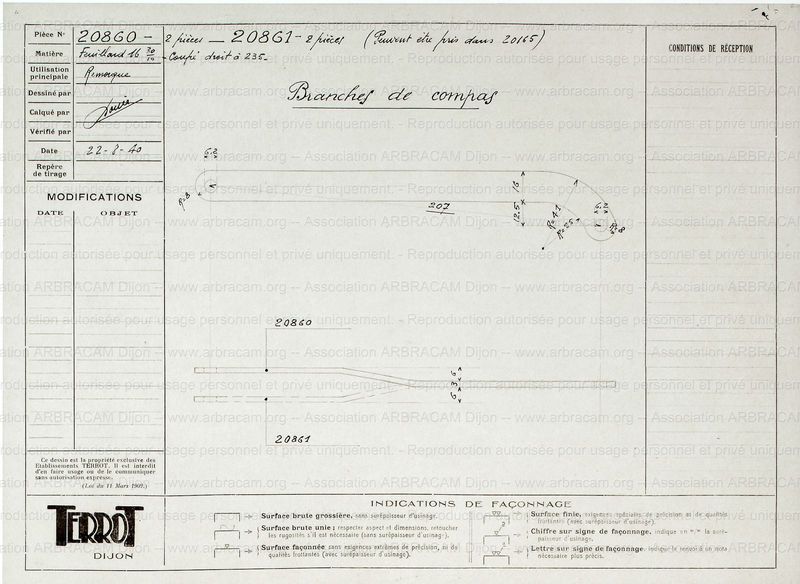 Pièce N° 20860 - 2 pièces — 20861 - 2 pièces (Peuvent être pris dans 20165)
Matière Feuillard 16 30/10 - Coupé droit à 235.
Utilisation principale Remorque
Dessiné par
Calqué par
Vérifié par
Date 22-8-40
Repère de tirage
MODIFICATIONS
DATE OBJET
CONDITIONS DE RÉCEPTION
Branches de compas
6.2
R=8
207
16
12.5
R=41
R=25
6.2
R=8
20860
6
3
6
20861
Ce dessin est la propriété exclusive des
Etablissements TERROT. Il est interdit
d'en faire usage ou de le communiquer
sans autorisation expresse.
(Loi du 11 Mars 1902.)
TERROT
DIJON
INDICATIONS DE FAÇONNAGE
Surface brute grossière, sans surépaisseur d'usinage.
Surface brute unie; respecter aspect et dimensions, retoucher
les rugosités s'il est nécessaire (sans surépaisseur d'usinage).
Surface façonnée sans exigences extrêmes de précision, ni de
qualités frottantes (avec surépaisseur d'usinage).
Surface finie, exigences spéciales de précision et de qualités
frottantes (avec surépaisseur d'usinage).
Chiffre sur signe de façonnage, indique en m/m la surépaisseur d'usinage.
Lettre sur signe de façonnage, indique le renvoi à un nota
nécessaire plus précis.
www.arbracam.org -- Association ARBRACAM Dijon --
Reproduction autorisée pour usage personnel et privé uniquement.